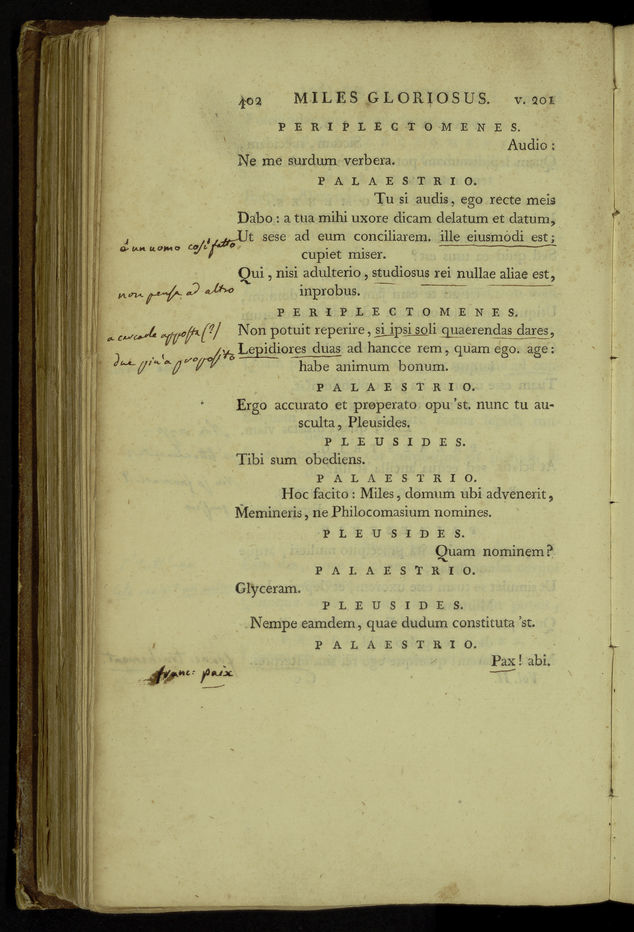 402 MILES GLORIOSUS. v. 201
PERIPLECTOMENES.
Audio :
Ne me surdum verbera.
PALAESTRIO.
Tu si audis, ego recte meis
Dabo : a tua mihi uxore dicam delatum et datum,
è un uomo così fatto
Ut sese ad eum conciliarem. ille eiusmodi est;
cupiet miser.
Qui, nisi adulterio, studiosus rei nullae aliae est,
non pensa ad altro
inprobus.
PERIPLECTOMENES.
a cercarle apposta (?)
Non potuit reperire, si ipsi soli quaerendas dares,
due più a proposito
Lepidiores duas ad hancce rem, quam ego. age :
habe animum bonum.
PALAESTRIO.
Ergo accurato et properato opu 'st. nunc tu au-
sculta, Pleusides.
PLEUSIDES.
Tibi sum obediens.
PALAESTRIO.
Hoc facito : Miles, domum ubi advenerit,
Memineris, ne Philocomasium nomines.
PLEUSIDES.
Quam nominem?
PALAESTRIO.
Glyceram.
PLEUSIDES.
Nempe eamdem, quae dudum constituta 'st.
PALAESTRIO.
Pax! abi.
franc: paix